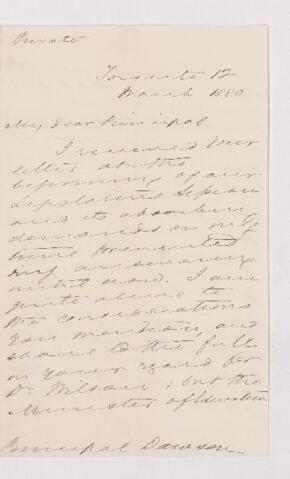 Private
Toronto 12
March 1880
My Dear Principal
I received your
letter at the
beginning of our
Legislative Session
and its absorbing
demands on my
time prevented
my answering
until now. I am
quite alive to
the considerations
you mention, and
share to the full
in your regard for
Dr. Wilson; but the
Minister of Education
Principal Dawson